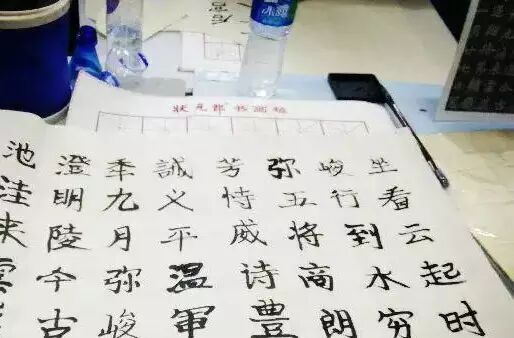 狀元郎书画毡
坐看云起时
峻行到水穷
弥五将高朗
芳恃威诗豊
誠义平温軍
季九月弥峻
澄明陵今古
池洼来雲
冰露